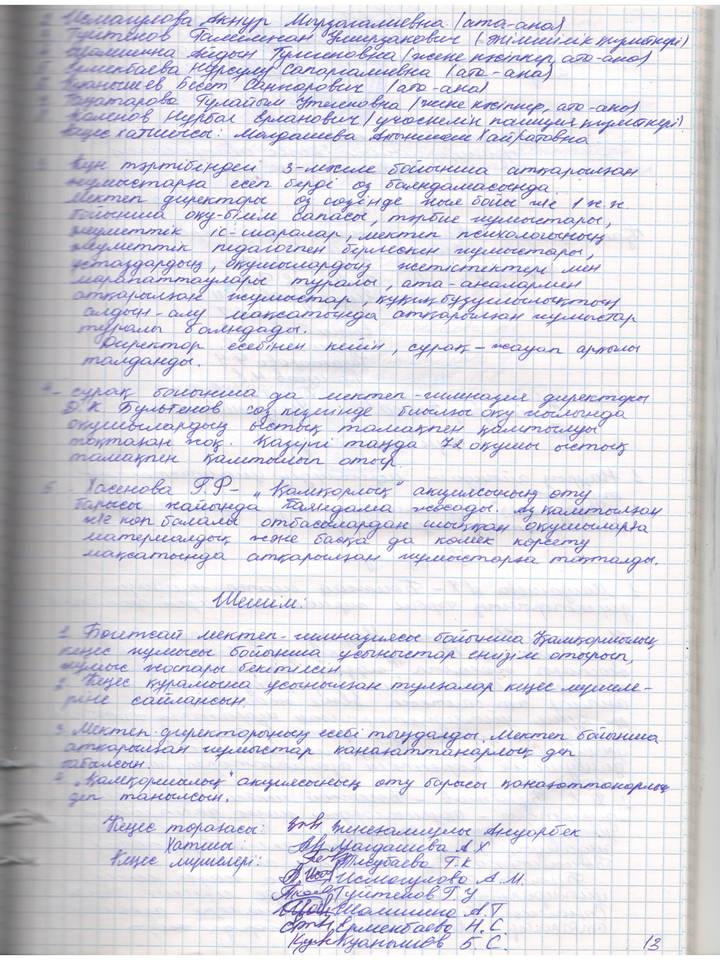 2. Исмагулова Акнур Мырзагалиевна (ата-ана)
3. Гуйтенов Умирзакович (Әкімшілік қызметкері)
4. Шалишина Айдын (жеке кәсіпкер, ата-ана)
5. Ерменбаева Нурсулу Сапаргалиевна (ата-ана)
6. Куанышев Бекет (ата-ана)
7. Гулайым Утегеновна (жеке кәсіпкер, ата-ана)
8. Нурбол Ерманович (учаскелік полиция қызметкері)
Кеңес хатшысы: Молдашева Хайратовна
3. Күн тәртібіндегі 3-мәселе бойынша атқарылған
жұмыстарға есеп берді өз баяндамасында.
Мектеп директоры өз сөзінде жыл бойы
бойынша оқу-білім сапасы, тәрбие жұмыстары,
әлеуметтік іс-шаралар, мектеп психологының
әлеуметтік педагогпен бірлескен жұмыстары,
ұстаздардың, оқушылардың жетістіктері мен
марапаттаулары туралы, ата-аналармен
атқарылған жұмыстар, құқықбұзушылықтың
алдын-алу мақсатында атқарылған жұмыстар
туралы баяндады.
Директор есебінен кейін, сұрақ-жауап арқылы
талданды.
4 - сұрақ бойынша да мектеп-гимназия директоры
Бультенов сөз кезегінде биылғы оқу жылында
оқушылардың ыстық тамақпен қамтылуы
тоқтаған жоқ. Қазіргі таңда 72 оқушы ыстық
тамақпен қамтылып отыр.
5 - Хасенова Г.Р - „Қамқорлық" акциясының өту
барысы жайында баяндама жасады. Аз қамтылған
және көп балалы отбасылардан шыққан оқушыларға
материалдық және басқа да көмек көрсету
мақсатында атқарылған жұмыстарға тоқталды.
Шешім:
1. мектеп-гимназиясы бойынша Қамқоршылық
кеңес жұмысы бойынша ұсыныстар енгізім отырып,
жұмыс жоспары бекітілсін
2. Кеңес құрамына ұсынылған тұлғалар кеңес мүшеле-
ріне сайлансын.
3. Мектеп директорының есебі тыңдалды. Мектеп бойынша
атқарылған жұмыстар қанағаттанарлық деп
табылсын.
4. „Қамқорлық" акциясының өту барысы қанағаттанарлық
деп танылсын.
Кеңес төрағасы: Ануарбек
Хатшы: Магдашева А.Х
Кеңес мүшелері: Тлеубаева Г.К
Исмагулова А.М.
Гуйтенов Г.У
Шалишина А.Т
Ерменбаева Н.С.
Куанышев Б.С.
13